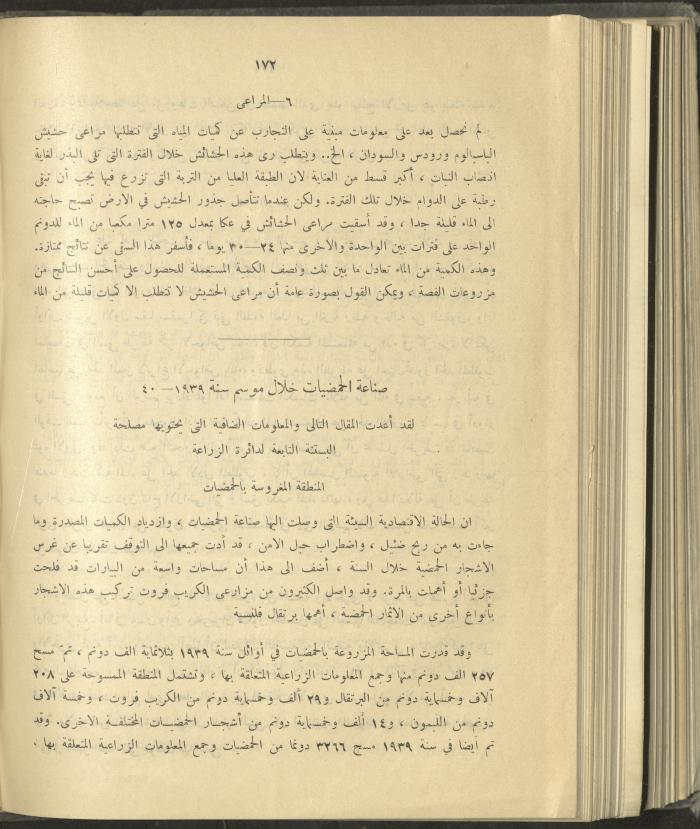 ١٧٢
٦—المراعى
لم نحصل بعد على معلومات مبنية على التجارب عن كميات المياه التى تتطلبها مراعى حشيش
الباسبالوم ورودس والسودان ، الخ.. ويتطلب رى هذه الحشائش خلال الفترة التى تلى البذر لغاية
انتصاب النبات ، أكبر قسط من العناية لان الطبقة العليا من التربة التى تزرع فيها يجب أن تبقى
رطبة على الدوام خلال تلك الفترة. ولكن عندما تتأصل جذور الحشيش في الارض تصبح حاجته
الى الماء قليلة جدا ، وقد أسقيت مراعى الحشائش في عكا بمعدل ١٢٥ مترا مكعبا من الماء للدونم
الواحد على فترات بين الواحدة والاخرى منها ٢٤—٣٠ يوما ، فأسفر هذا السقى عن نتائج ممتازة.
وهذه الكمية من الماء تعادل ما بين ثلث ونصف الكمية المستعملة للحصول على أحسن النتائج من
مزروعات الفصة ، ويمكن القول بصورة عامة أن مراعى الحشيش لا تتطلب الا كميات قليلة من الماء
صناعة الحمضيات خلال موسم سنة ١٩٣٩—٤٠
لقد أعدت المقال التالى والمعلومات الضافية التى يحتويها مصلحة
البستنة التابعة لدائرة الزراعة
المنطقة المغروسة بالحمضيات
ان الحالة الاقتصادية السيئة التى وصلت اليها صناعة الحمضيات ، وازدياد الكميات المصدرة وما
جاءت به من ربح ضئيل ، واضطراب حبل الامن ، قد أدت جميعها الى التوقف تقريبا عن غرس
الاشجار الحمضية خلال السنة ، أضف الى هذا أن مساحات واسعة من البيارات قد فلحت
جزئيا أو أهملت بالمرة. وقد واصل الكثيرون من مزارعى الكريب فروت تركيب هذه الاشجار
بأنواع أخرى من الاثمار الحمضية ، أهمها برتقال فلنسية
وقد قدرت المساحة المزروعة بالحمضيات في أوائل سنة ١٩٣٩ بثلثماية الف دونم ، تم مسح
٢٥٧ الف دونم منها وجمع المعلومات الزراعية المتعلقة بها ، وتشتمل المنطقة الممسوحة على ٢٠٨
آلاف وخمسماية دونم من البرتقال و٢٩ ألف وخمسماية دونم من الكريب فروت ، وخمسة آلاف
دونم من الليمون ، و١٤ ألف وخمسماية دونم من أشجار الحمضيات المختلفة الاخرى. وقد
تم أيضا في سنة ١٩٣٩ مسح ٣٢٦٦ دونما من الحمضيات وجمع المعلومات الزراعية المتعلقة بها ،